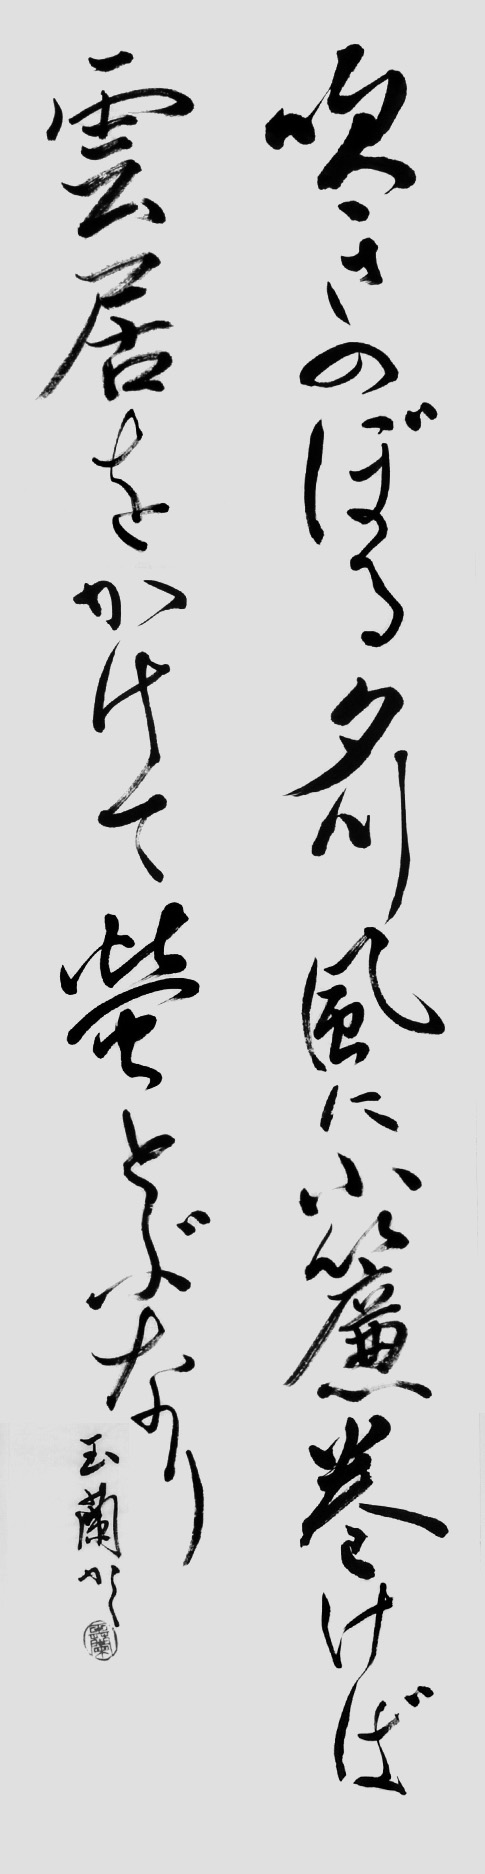 吹きのぼる夕川風に小簾巻けば
雲居をかけて螢とぶなり
玉蘭かく